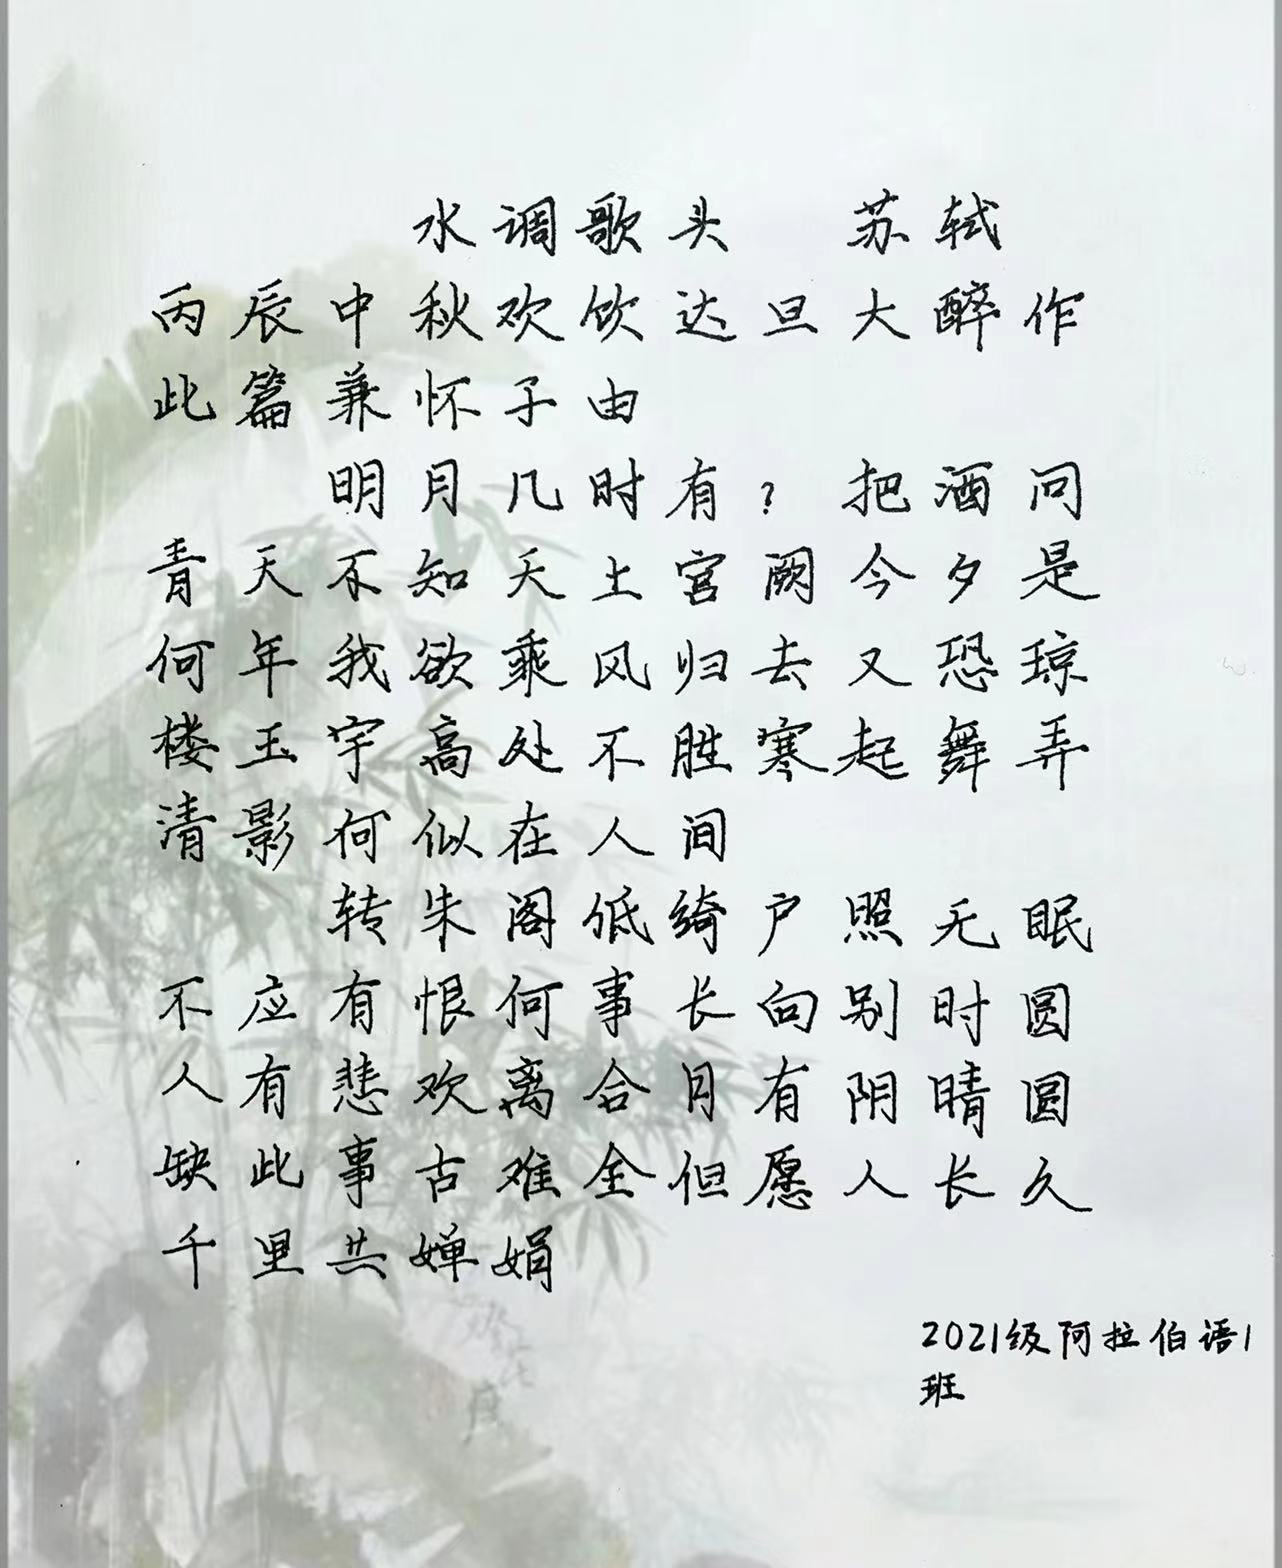 水调歌头 苏轼
丙辰中秋欢饮达旦大醉作
此篇兼怀子由
明月几时有?把酒问
青天不知天上宫阙今夕是
何年我欲乘风归去又恐琼
楼玉宇高处不胜寒起舞弄
清影何似在人间
转朱阁低绮户照无眠
不应有恨何事长向别时圆
人有悲欢离合月有阴晴圆
缺此事古难全但愿人长久
千里共婵娟
2021级阿拉伯语1
班